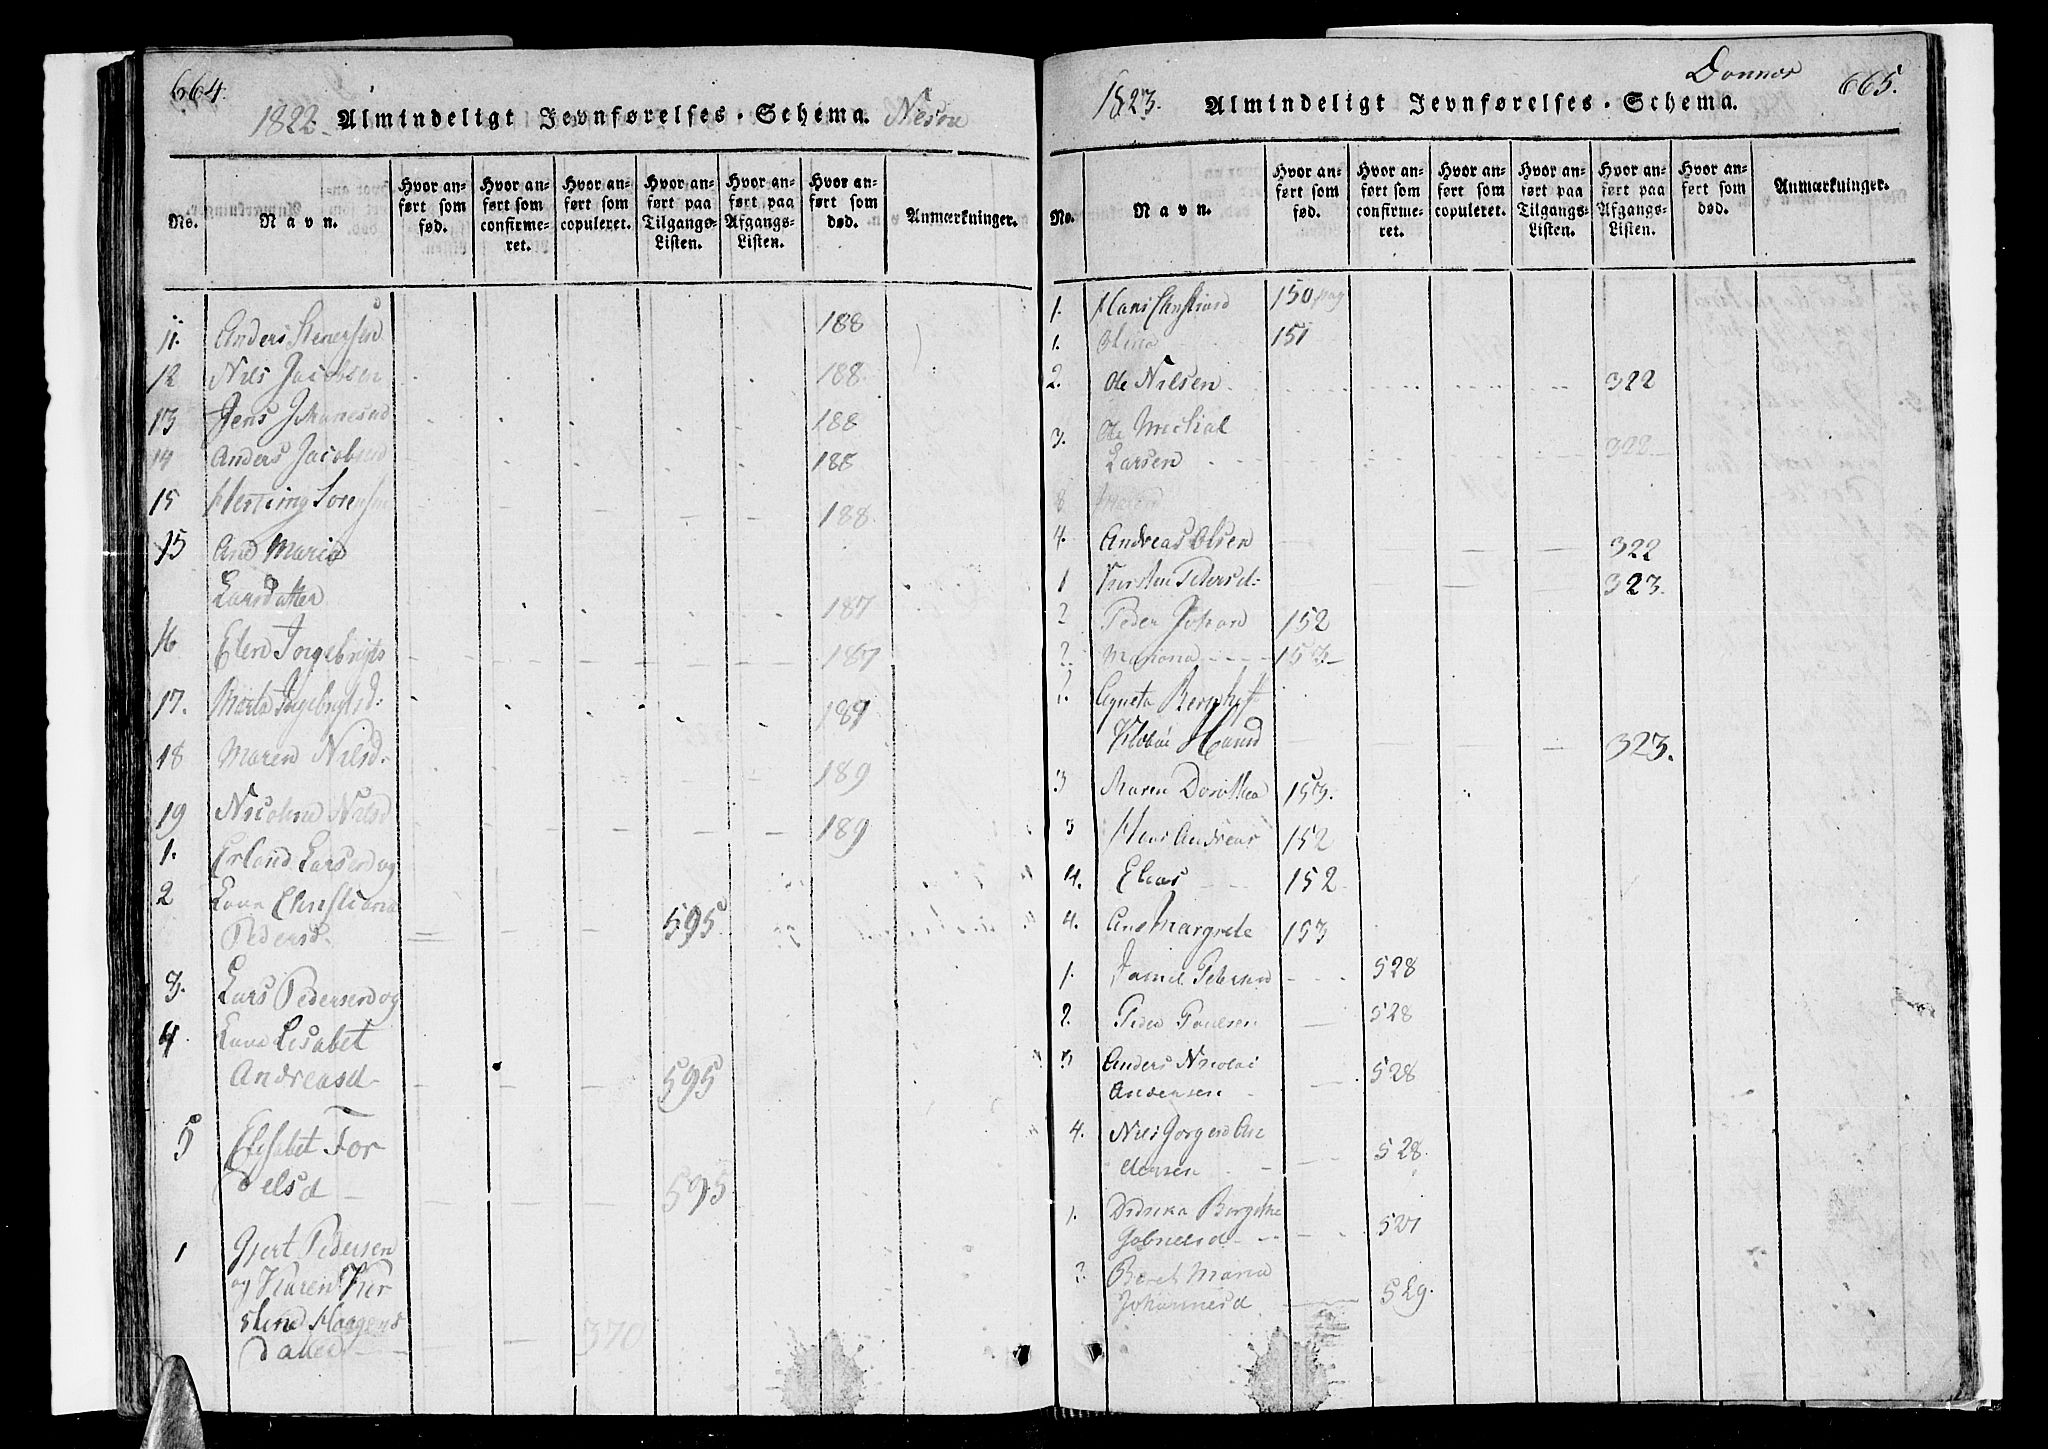 664.
1822. Almindeligt Jevnførelses-Schema. Nesøe
No.
Navn.
Hvor anført som fød.
Hvor anført som confirmeret.
Hvor anført som copuleret.
Hvor anført paa Tilgangs-Listen.
Hvor anført paa Afgangs-Listen.
Hvor anført som død.
Anmærkninger.
11. Anders Stenersen 188
12 Nils Jacobsen 188.
13 Jens Johanesen 188
14 Anders Jacobsen 188
15 Henning Sorensen 188
15 Ane Maria
Larsdatter 187
16 Elen Ingebrigts 187
17. Marta Ingebrigtsd: 189
18 Maren Nilsd. 189
19 Nicoline Nilsd 189
1. Erland Larsen og
2 Lane Christiana
Pedersd. 595
3. Lars Pedersen og
4 Lane Lisabet
Andreasd. 595
5 Elisabet Tor
delsd 595
1 Gjert Pedersen
og Karen Kir
stine Haagens
datter 370
Donnes
665.
1823. Almindeligt Jevnførelses-Schema.
No.
Navn.
Hvor anført som fød.
Hvor anført som confirmeret.
Hvor anført som copuleret.
Hvor anført paa Tilgangs-Listen.
Hvor anført paa Afgangs-Listen.
Hvor anført som død.
Anmærkninger.
1. Hans Christian 150 pag
1. Olina 151
2. Ole Nilsen 322
3. Ole Michal
Larsen 322
8 Maren
4. Andreas Olsen 322
1 Kirsten Petersd: 323.
2 Peder Johan 152
2. Mariana 153
2. Agneta Bernhoft
Klobøe Hansd 323.
3 Maren Dorothea 153.
3 Hans Andreas 152
4. Elias 152
4. Ane Margrete 153
1. Daniel Petersen 528
2. Peder Paulsen 528
3 Anders Nicolai
Andersen 528
4. Nils Jorgen An
dersen 528.
1. Didrika Borgitha
Gabrielsd 527
2. Beret Maria
Johannesd 529.